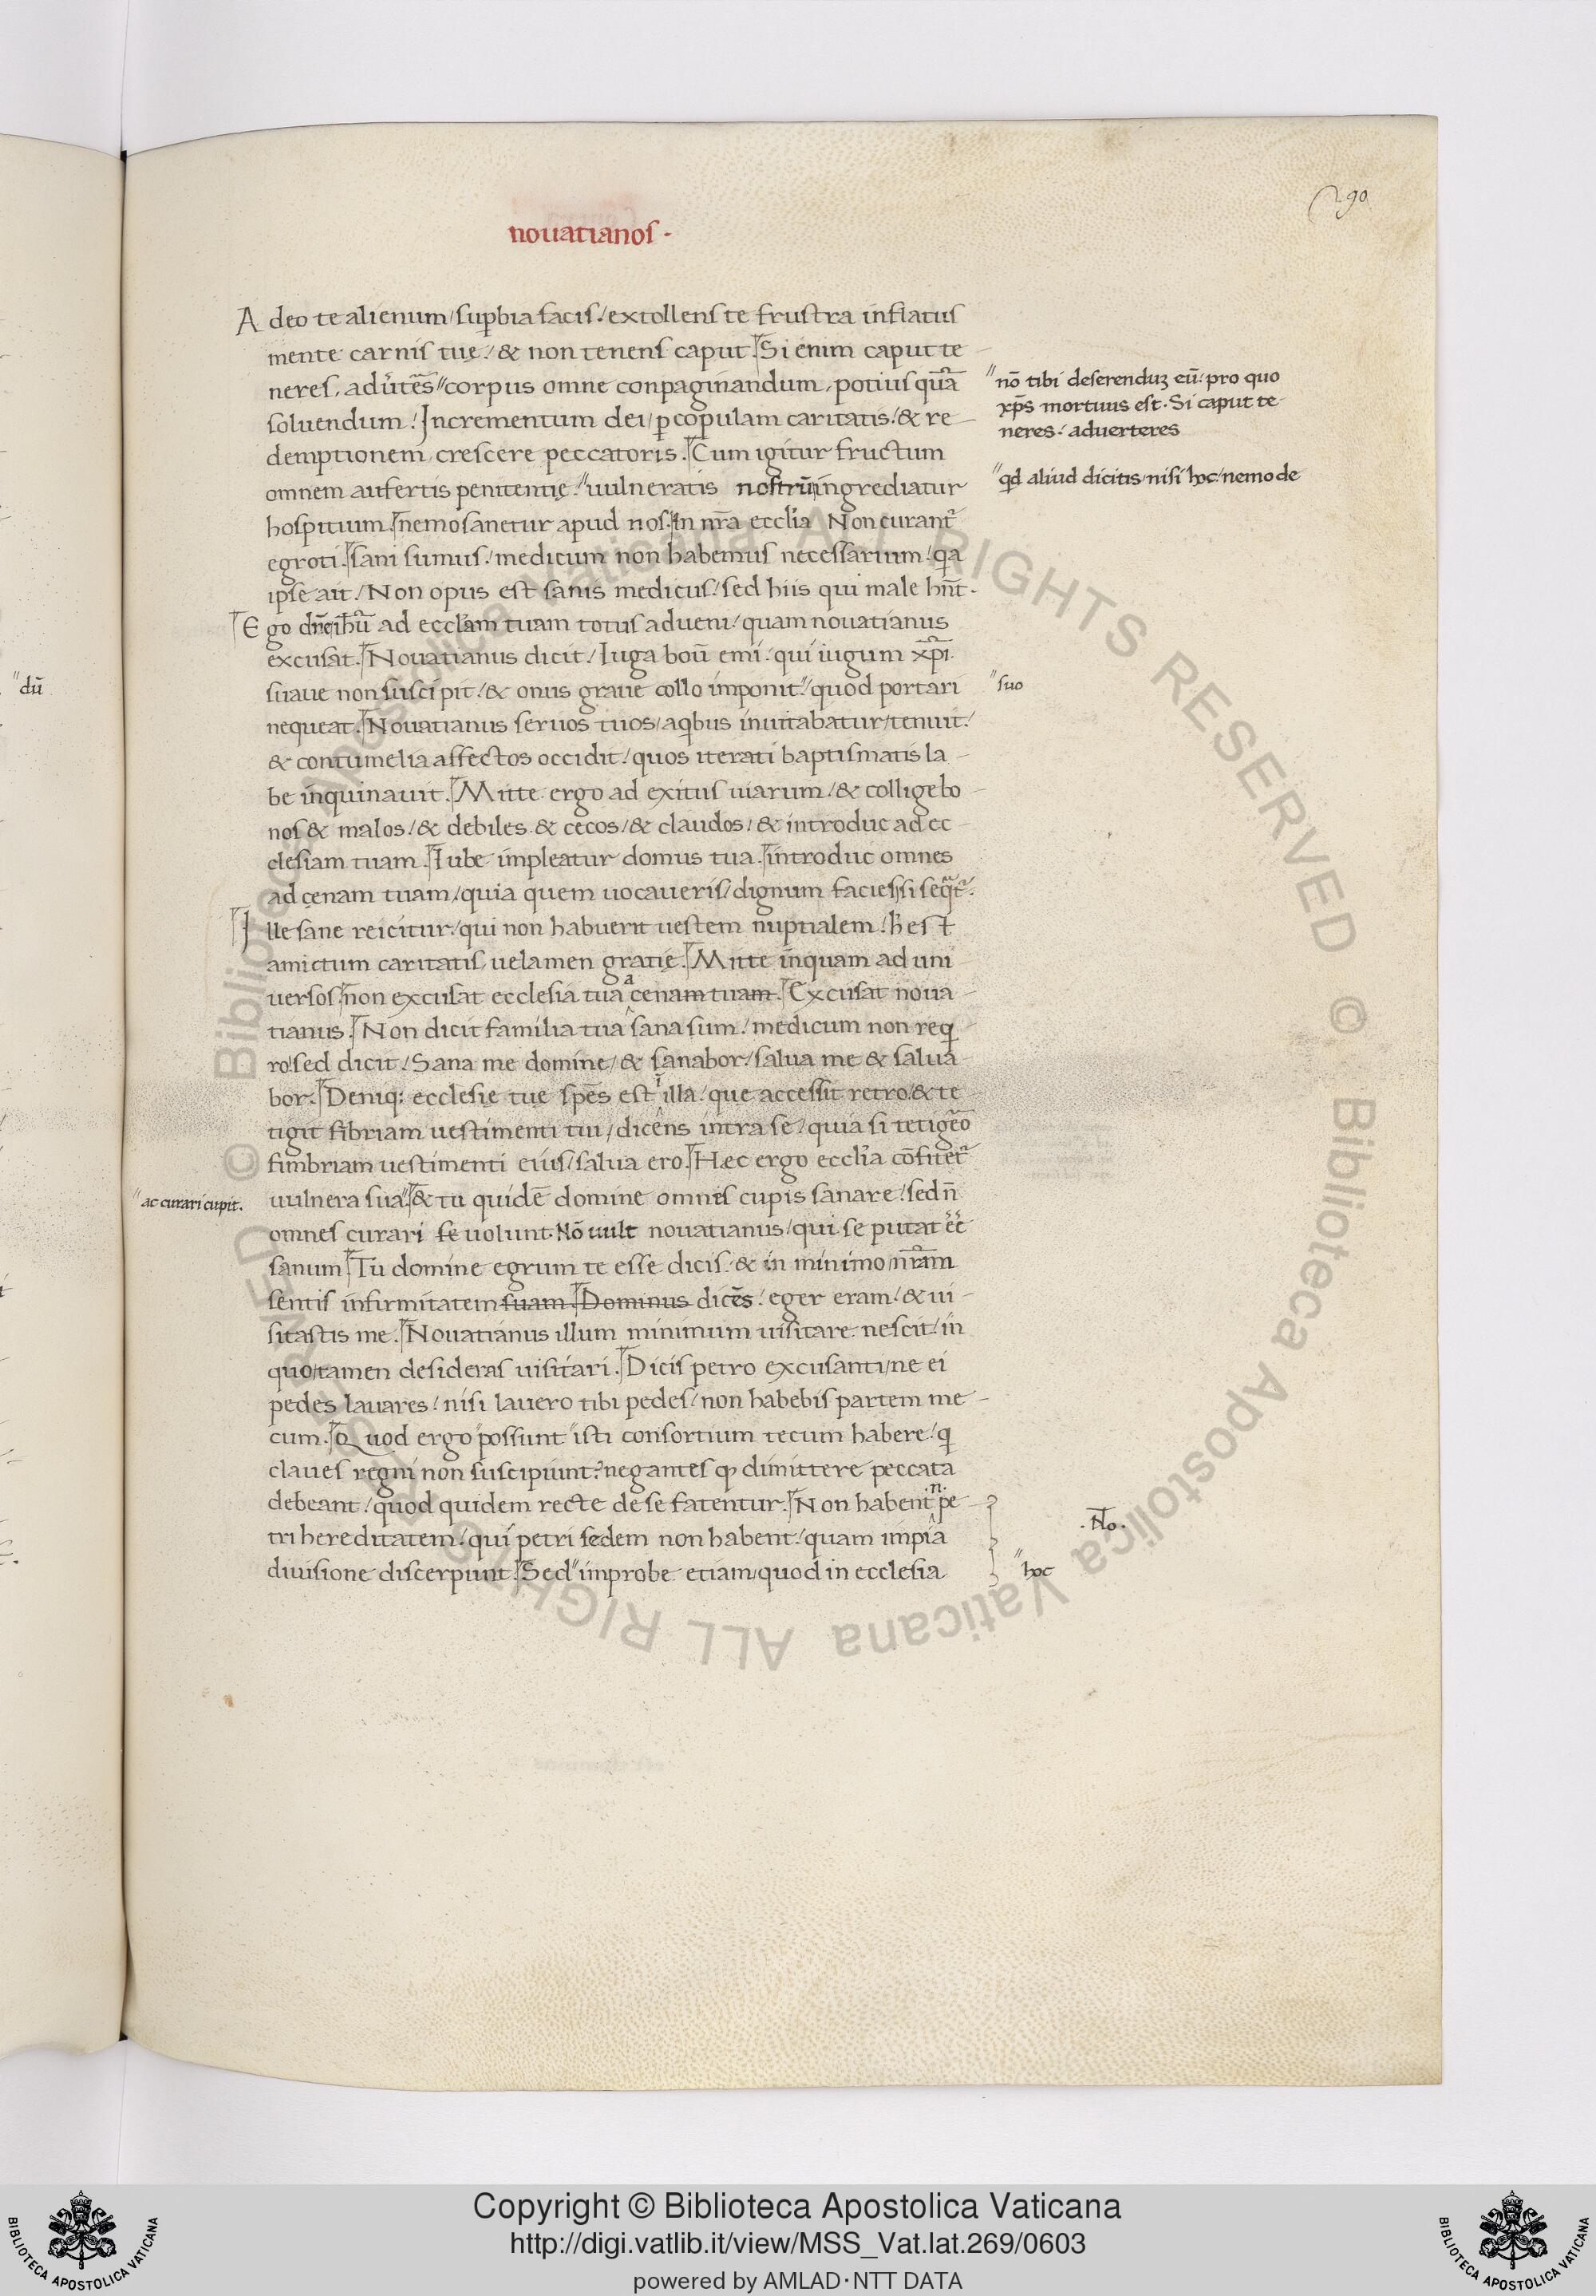 290
nouatianos.
A deo te alienum/supbia facis/extollens te frustra inflatus
mente carnis tuę/& non tenens caput. Si enim caput te
neres, adu͛te͞s"corpus omne conpaginandum, potius qua͞
soluendum/Incrementum dei/p copulam caritatis/& re
demptionem crescere peccatoris. Cum igitur fructum
omnem aufertis penitentię/"uulneratis nostru͞ ingrediatur
hospitium. nemo sanetur apud nos. in nr͞a eccl'ia Non curant͛
egroti. sani sumus/medicum non habemus necessarium/qa
ipse ait/Non opus est sanis medicus/sed hiis qui male hn͞t.
Ego dn͞e ihu͞ ad eccl'am tuam totus adueni/quam nouatianus
excusat. Novatianus dicit/Iuga bou͞ emi/qui iugum xp͞i
suaue non suscipit/& onus graue collo imponit/"quod portari
nequeat. Nouatianus seruos tuos/aqbus inuitabatur/tenuit/
& contumelia affectos occidit/quos iterati baptismatis la
be inquinauit. Mitte ergo ad exitus uiarum/& collige bo
nos & malos/& debiles & cecos/& claudos/& introduc ad ec
clesiam tuam. Iube impleatur domus tua. introduc omnes
ad cenam tuam/quia quem uocaueris/dignum facies/si seqt͛.
Ille sane reicitur/qui non habuerit uestem nuptialem/h est
amictum caritatis, uelamen gratię. Mitte inquam ad uni
uersos. non excusat ecclesia tua a cenam tuam. Excusat noua
tianus. Non dicit familia tua sana sum/medicum non req
ro/sed dicit/Sana me domine/& sanabor/salua me & salua
bor. Deniq; ecclesię tuę spe͞s est i͞ illa/que accessit retro/& te
tigit fibriam uestimenti tui/dicens intra se/quia si tetigero
fimbriam uestimenti eius/salua ero. Hęc ergo eccl'ia co͞fitet͛
uulnera sua". & tu quide͞ domine omnes cupis sanare/sed n͞
omnes curari se uolunt. No͞ uult nouatianus/qui se putat e͞e͞
sanum. Tu domine egrum te esse dicis/& in minimo/nr͞am
sentis infirmitatem suam. Dominus dice͞s/eger eram/& ui
sitastis me. Nouatianus illum minimum uisitare nescit/in
quo/tamen desideras uisitari. Dicis petro excusanti/ne ei
pedes lauares/nisi lauero tibi pedes/non habebis partem me
cum. Quod ergo "possunt" isti consortium tecum habere/q
claues regni non suscipiunt? negantes q dimittere peccata
debeant/quod quidem recte de se fatentur. Non habent .n. pe
tri hereditatem/qui petri sedem non habent/quam impia
diuisione discerpunt. Sed "improbe etiam/quod in ecclesia
"no͞ tibi deferenduʒ eu͞/pro quo
xp͞s mortuus est. Si caput te
neres/aduerteres
"qd aliud dicitis/nisi hoc/nemo de
"suo
.No͞.
"hoc
"du͞
"ac curari cupit.
© Biblioteca Apostolica Vaticana ALL RIGHTS RESERVED © Biblioteca Apostolica Vaticana ALL RIGHTS RESERVED
Copyright © Biblioteca Apostolica Vaticana
http://digi.vatlib.it/view/MSS_Vat.lat.269/0603
powered by AMLAD·NTT DATA
BIBLIOTECA APOSTOLICA VATICANA
BIBLIOTECA APOSTOLICA VATICANA